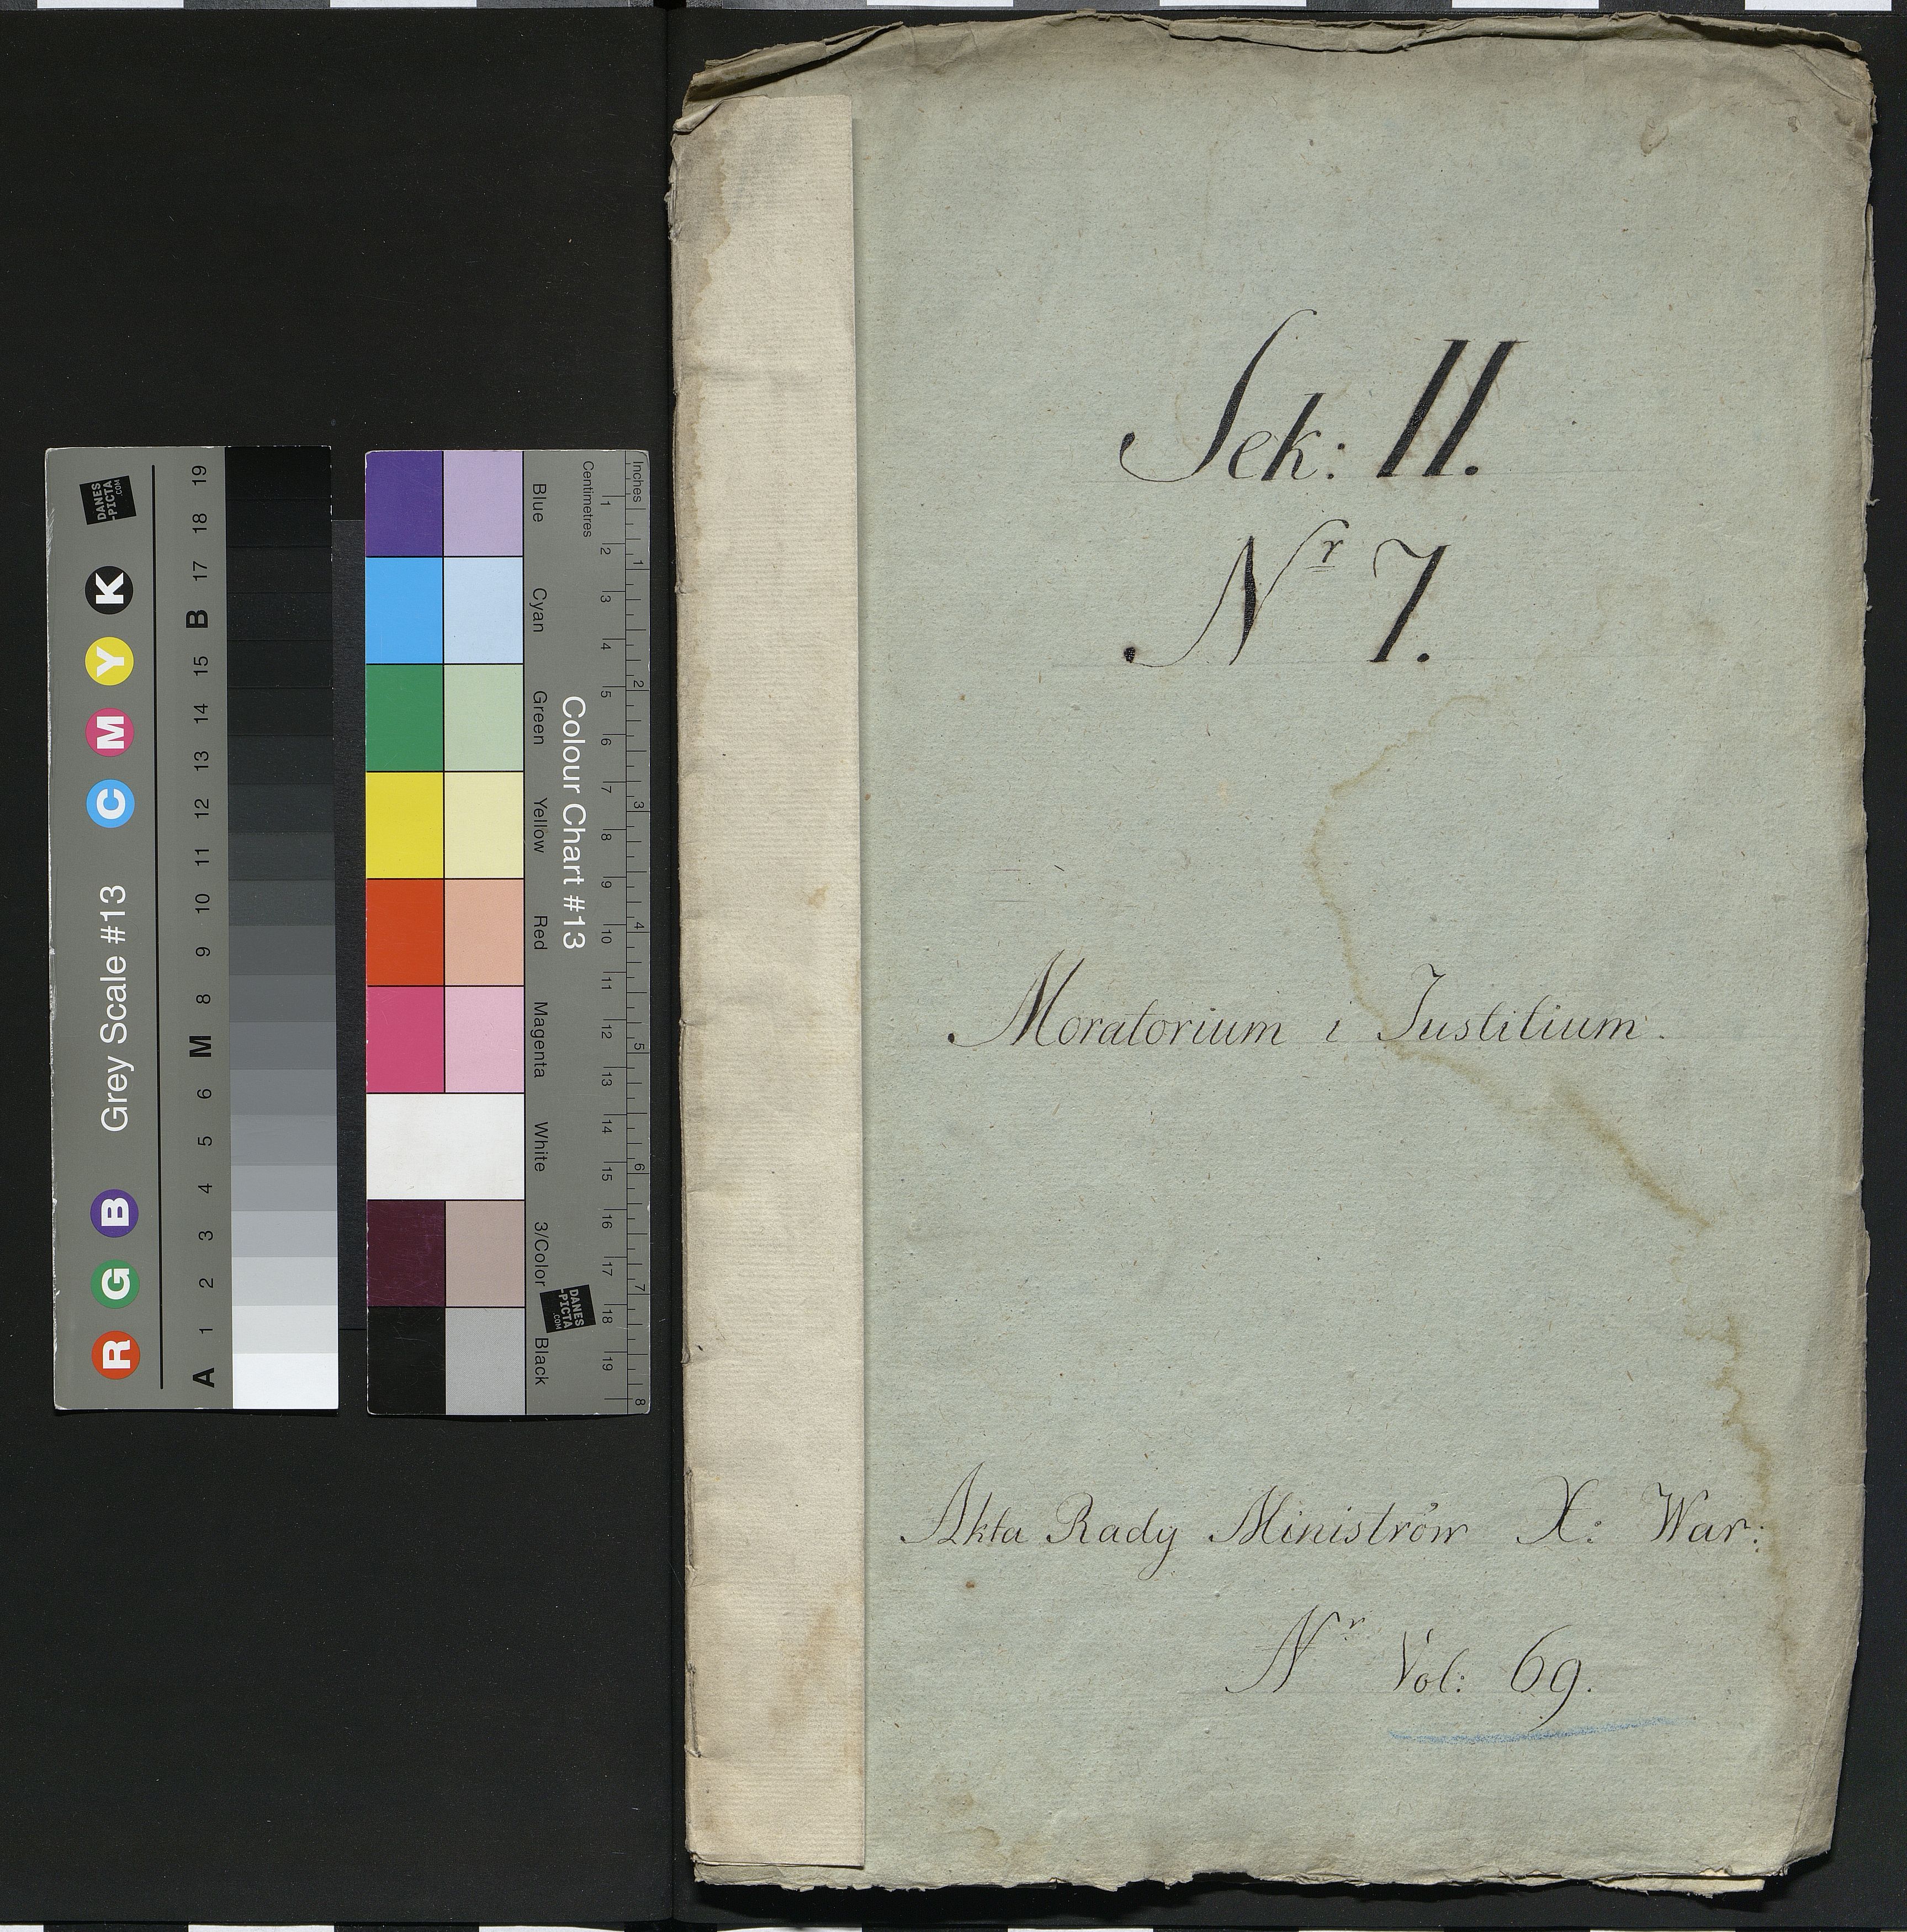 Sek: II.
Nr 7.
Moratorium i Justitium.
Akta Rady Ministrów X: War:
Nr Vol: 69.
Grey Scale #13
C M Y K
R G B
A 1 2 3 4 5 6 M 8 9 10 11 12 13 14 15 B 17 18 19
DANES
-PICTA
.COM
Colour Chart #13
Blue Cyan Green Yellow Red Magenta White 3/Color Black
Centimetres
1 2 3 4 5 6 7 8 9 10 11 12 13 14 15 16 17 18 19
Inches
1 2 3 4 5 6 7 8
DANES
-PICTA
.COM